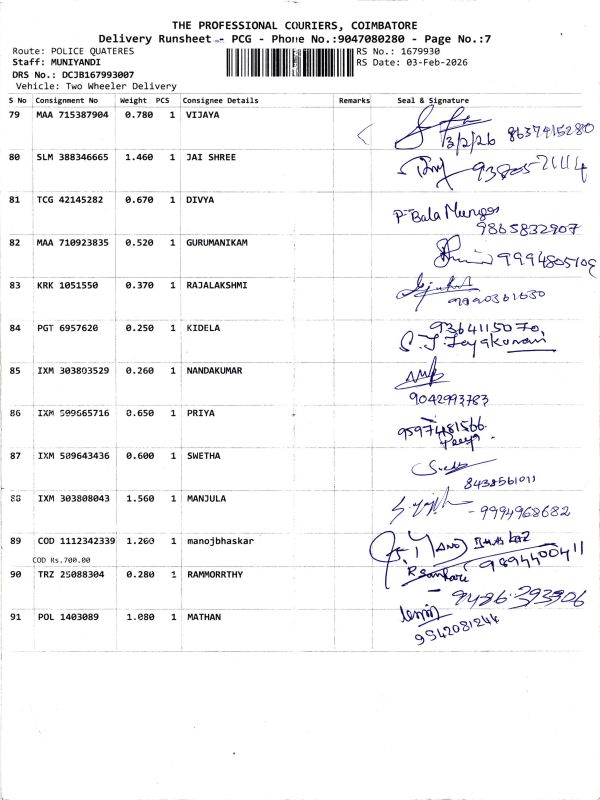 THE PROFESSIONAL COURIERS, COIMBATORE
Delivery Runsheet - PCG - Phone No.:9047080280 - Page No.:7
Route: POLICE QUATERES
RS No.: 1679930
Staff: MUNIYANDI
RS Date: 03-Feb-2026
DRS No.: DCJB167993007
Vehicle: Two Wheeler Delivery
S No Consignment No Weight PCS Consignee Details Remarks Seal & Signature
79 MAA 715387904 0.780 1 VIJAYA
3/2/26 8637415280
80 SLM 388346665 1.460 1 JAI SHREE
81 TCG 42145282 0.670 1 DIVYA
P. Bala Murugan
9865832907
82 MAA 710923835 0.520 1 GURUMANIKAM
9994805109
83 KRK 1051550 0.370 1 RAJALAKSHMI
84 PGT 6957620 0.250 1 KIDELA
9364115070,
85 IXM 303803529 0.260 1 NANDAKUMAR
9042993783
86 IXM 509665716 0.650 1 PRIYA
9597481566
87 IXM 509643436 0.600 1 SWETHA
8438561011
88 IXM 303808043 1.560 1 MANJULA
- 9994968682
89 COD 1112342339 1.260 1 manojbhaskar
9894400411
COD Rs.700.00
90 TRZ 25088304 0.280 1 RAMMORRTHY
R Sankari
- 9486 393906
91 POL 1403089 1.080 1 MATHAN
9542081244